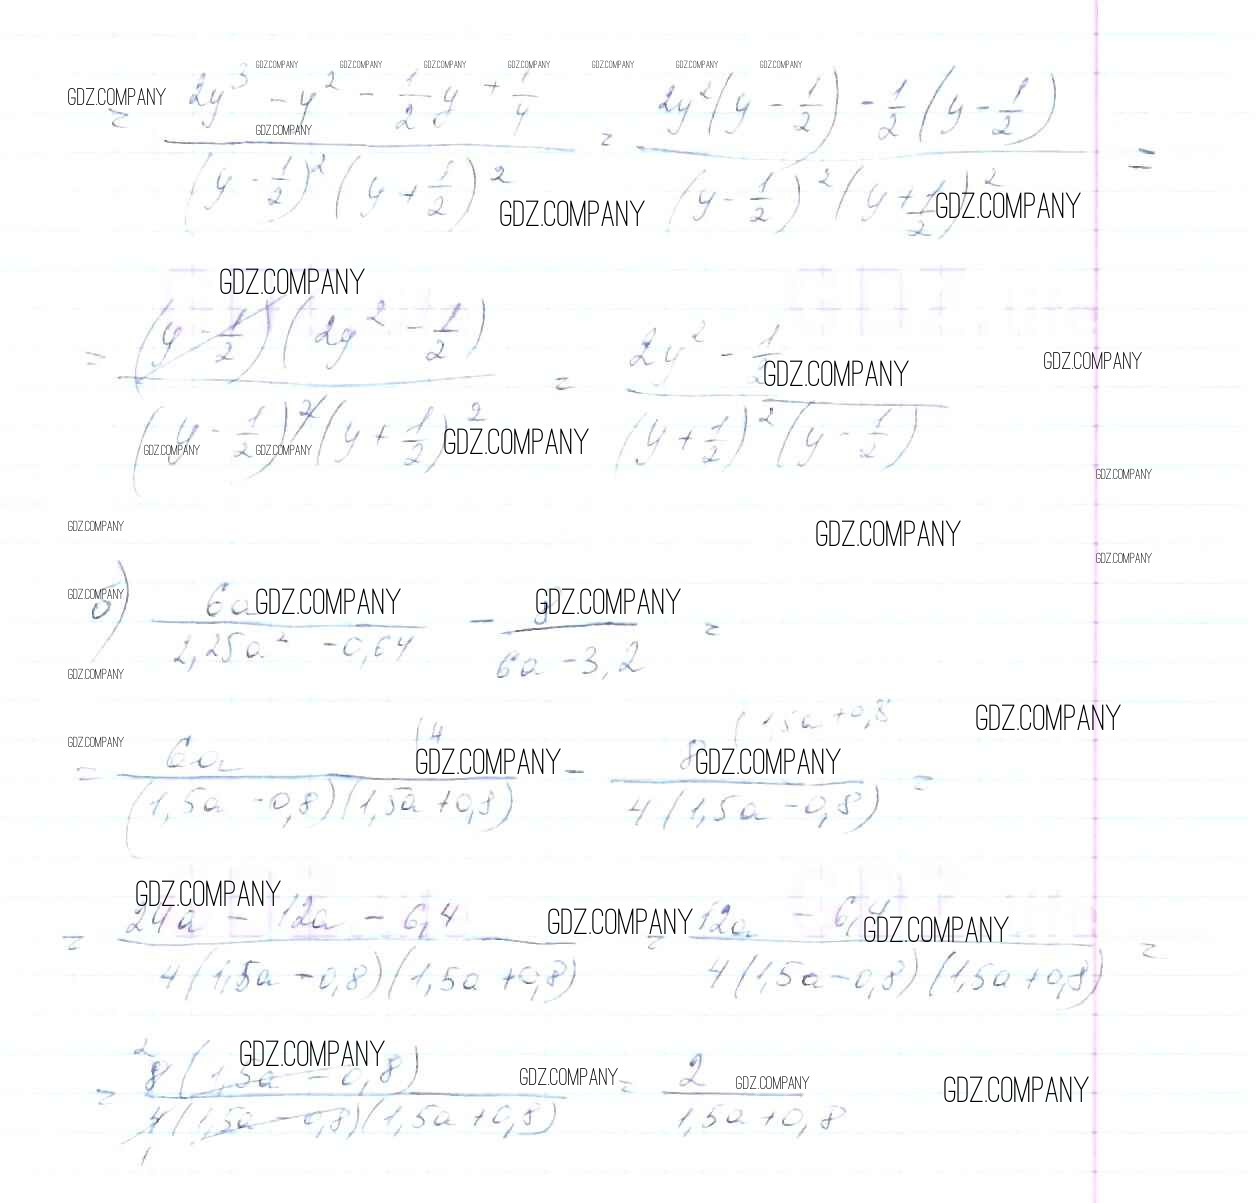 GDZ.COMPANY GDZ.COMPANY GDZ.COMPANY GDZ.COMPANY GDZ.COMPANY GDZ.COMPANY GDZ.COMPANY
GDZ.COMPANY
= (2y³ - y² - 1/2 y + 1/4) / ((y - 1/2)² (y + 1/2)²) = (2y²(y - 1/2) - 1/2 (y - 1/2)) / ((y - 1/2)² (y + 1/2)²) =
GDZ.COMPANY
GDZ.COMPANY GDZ.COMPANY
GDZ.COMPANY
= ((y - 1/2)(2y² - 1/2)) / ((y - 1/2)² (y + 1/2)²) = (2y² - 1/2) / ((y + 1/2)² (y - 1/2))
GDZ.COMPANY GDZ.COMPANY
GDZ.COMPANY GDZ.COMPANY GDZ.COMPANY
GDZ.COMPANY
GDZ.COMPANY GDZ.COMPANY
GDZ.COMPANY
GDZ.COMPANY GDZ.COMPANY GDZ.COMPANY
б) 6a / (2,25a² - 0,64) - 8 / (6a - 3,2) =
GDZ.COMPANY
GDZ.COMPANY
GDZ.COMPANY
= 6a (4 / ((1,5a - 0,8)(1,5a + 0,8)) - 8 (1,5a + 0,8 / (4(1,5a - 0,8)) =
GDZ.COMPANY GDZ.COMPANY
GDZ.COMPANY GDZ.COMPANY GDZ.COMPANY
= (24a - 12a - 6,4) / (4(1,5a - 0,8)(1,5a + 0,8)) = (12a - 6,4) / (4(1,5a - 0,8)(1,5a + 0,8)) =
GDZ.COMPANY
= 2 8(1,5a - 0,8) / (4(1,5a - 0,8)(1,5a + 0,8)) 1 = 2 / (1,5a + 0,8)
GDZ.COMPANY GDZ.COMPANY GDZ.COMPANY